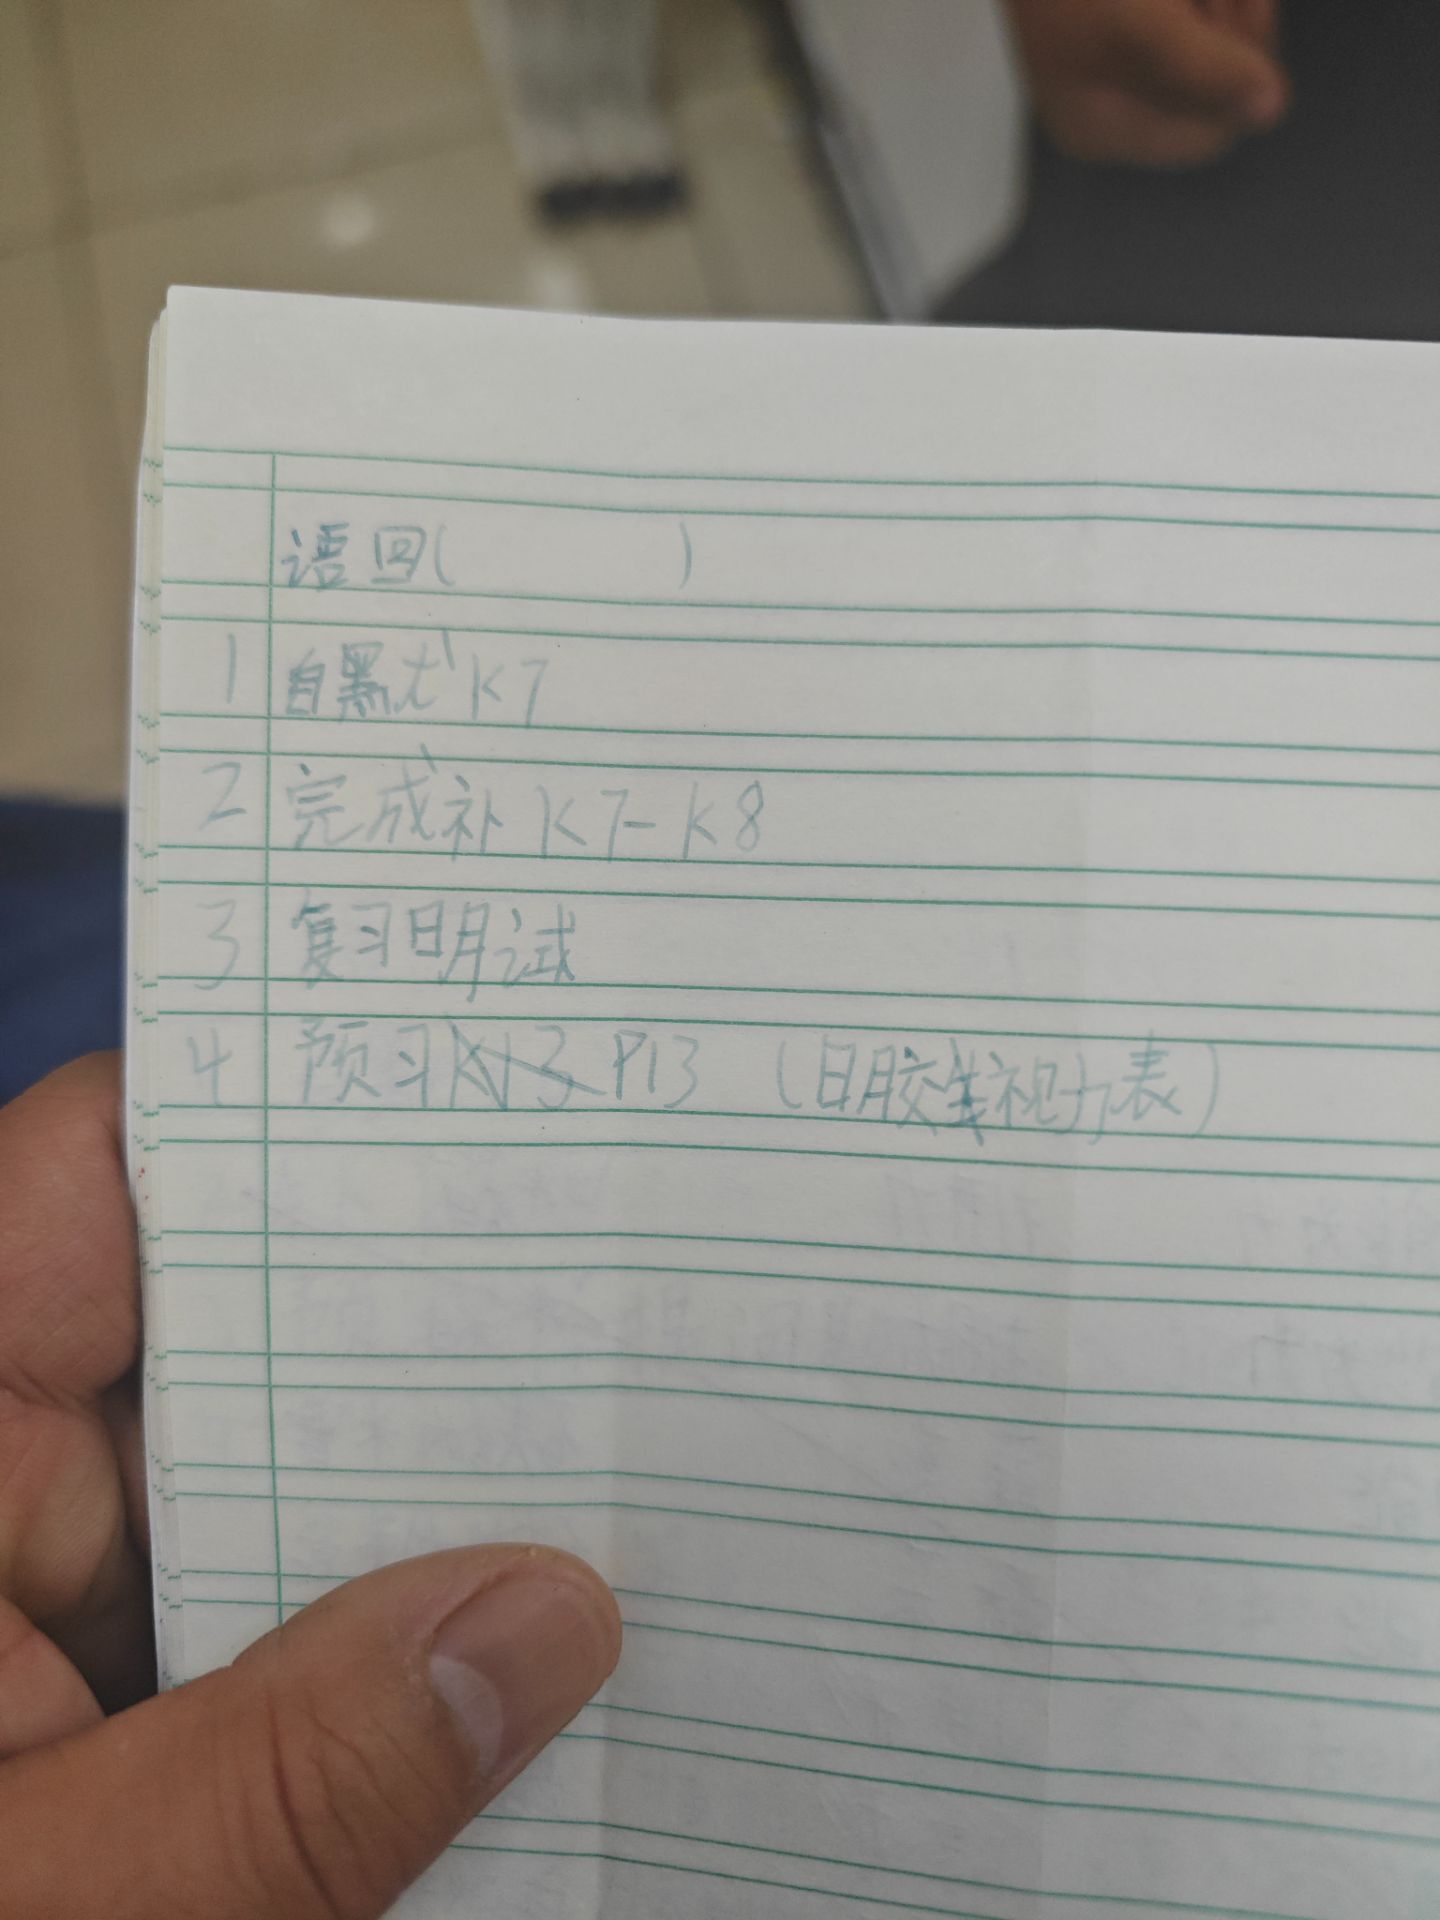 语回(          )
1 自默式K7
2 完成补K7-K8
3 复习明试
4 预习 P13 (日胶生视力表)